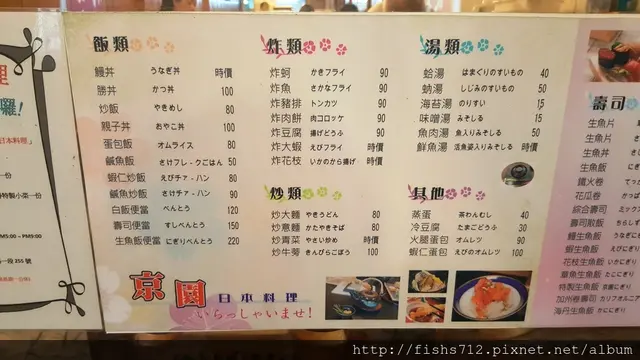 飯類
鰻丼 うなぎ丼 時價
勝丼 かつ丼 100
炒飯 やきめし 80
親子丼 おやこ丼 100
蛋包飯 オムライス 80
鹹魚飯 さけフレ-クごはん 50
蝦仁炒飯 えびチァ-ハン 90
鹹魚炒飯 さけチァ-ハン 90
白飯便當 べんとう 120
壽司便當 すしべんとう 150
生魚飯便當 にぎりべんとう 220
炸類
炸蚵 かきフライ 90
炸魚 さかなフライ 90
炸豬排 トンカツ 90
炸肉餅 肉コロッケ 90
炸豆腐 揚げどうふ 90
炸大蝦 えびフライ 時價
炸花枝 いかのから揚げ 時價
炒類
炒大麵 やきうどん 80
炒意麵 かたやきそば 80
炒青菜 やさい炒め 時價
炒牛蒡 きんぴらごぼう 100
湯類
蛤湯 はまぐりのすいもの 40
蚋湯 しじみのすいもの 50
海苔湯 のりすい 15
味噌湯 みそしる 15
魚肉湯 魚入りみそしる 50
鮮魚湯 活魚姿入りみそしる 時價
其他
蒸蛋 茶わんむし 40
冷豆腐 たまごどうふ 30
火腿蛋包 オムレツ 90
蝦仁蛋包 えびのオムレツ 100
壽司
生魚片
生魚片
生魚丼
生魚飯
鐵火卷
花瓜卷
綜合壽司
壽司散飯
鰻生魚飯
蝦生魚飯
花枝生魚飯
章魚生魚飯
特製生魚飯
加州卷壽司
海丹生魚飯
京園 日本料理
いらっしゃいませ!
日本料理」
特製小菜一份
PM5:00 – PM9:00
一段 255 號
http://fishs712.pixnet.net/album